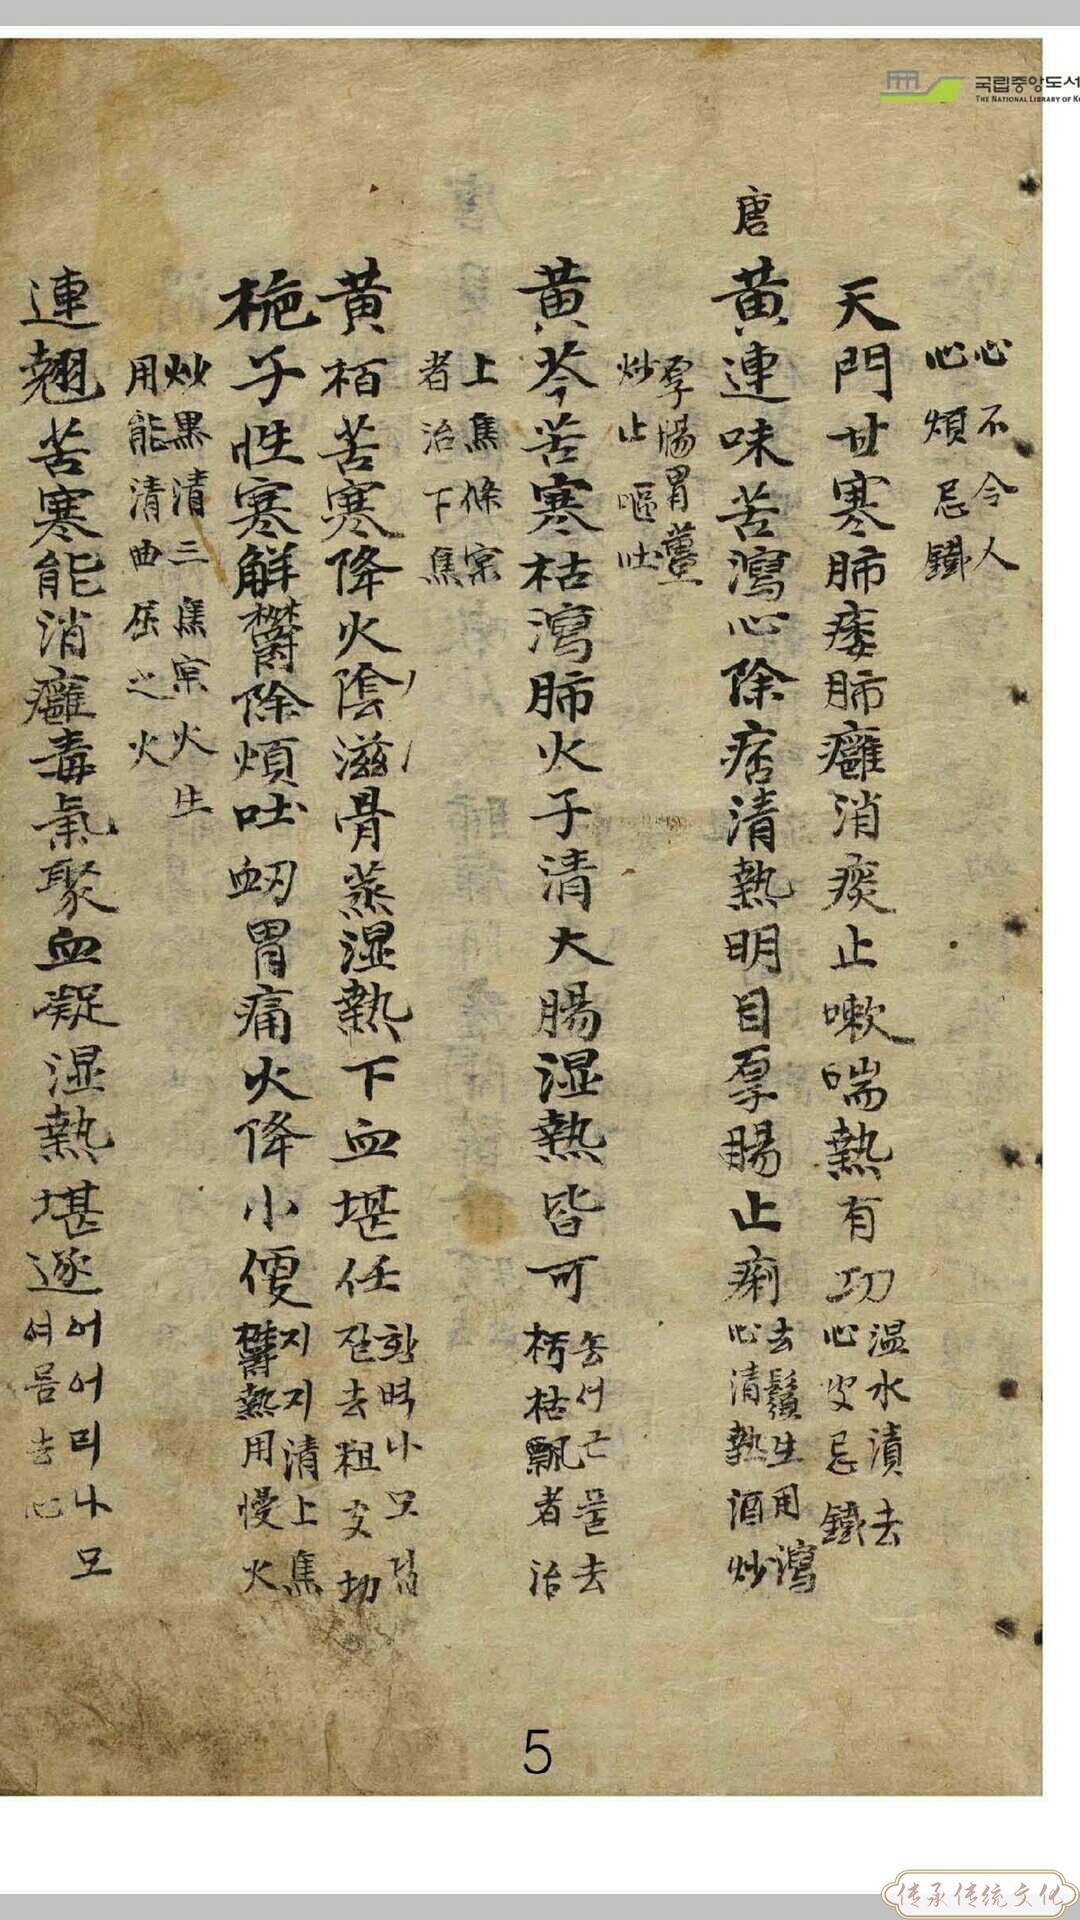 국립중앙도서
THE NATIONAL LIBRARY OF K
心不令人
心煩忌鐵
天門甘寒肺痿肺癰消痰止嗽喘熱有功
温水漬去
心皮忌鐵
唐
黃連味苦瀉心除痞清熱明目厚腸止痢
去鬚生用瀉
心清熱酒炒
厚腸胃薑
炒止嘔吐
黃芩苦寒枯瀉肺火子清大腸湿熱皆可
속서근플去
朽枯飄者治
上焦條宲
者治下焦
黃栢苦寒降火陰滋骨蒸湿熱下血堪任
황벽나모겁
질去粗皮切
梔子性寒解欝除煩吐衂胃痛火降小便
지지清上焦
欝熱用慢火
炒黒清三焦宲火生
用能清曲屈之火
連翹苦寒能消癰毒氣聚血凝湿熱堪逐
어어리나모
여름去心
5
传承传统文化